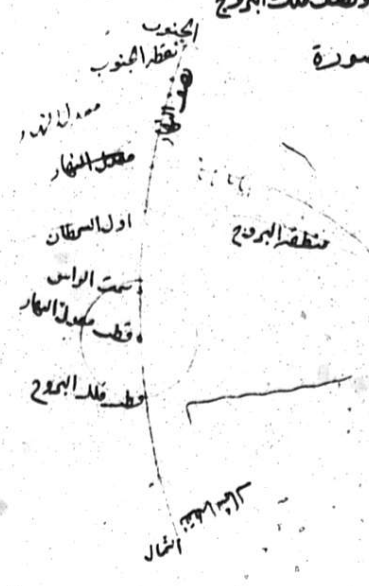 ونصف فلك البروج
صورة
الجنوب
نقطة الجنوب
نصف النهار
معدل النهار
معدل النهار
اول السرطان
منطقة البروج
سمت الراس
قطب معدل النهار
قطب فلك البروج
نقطة الشمال
الشمال